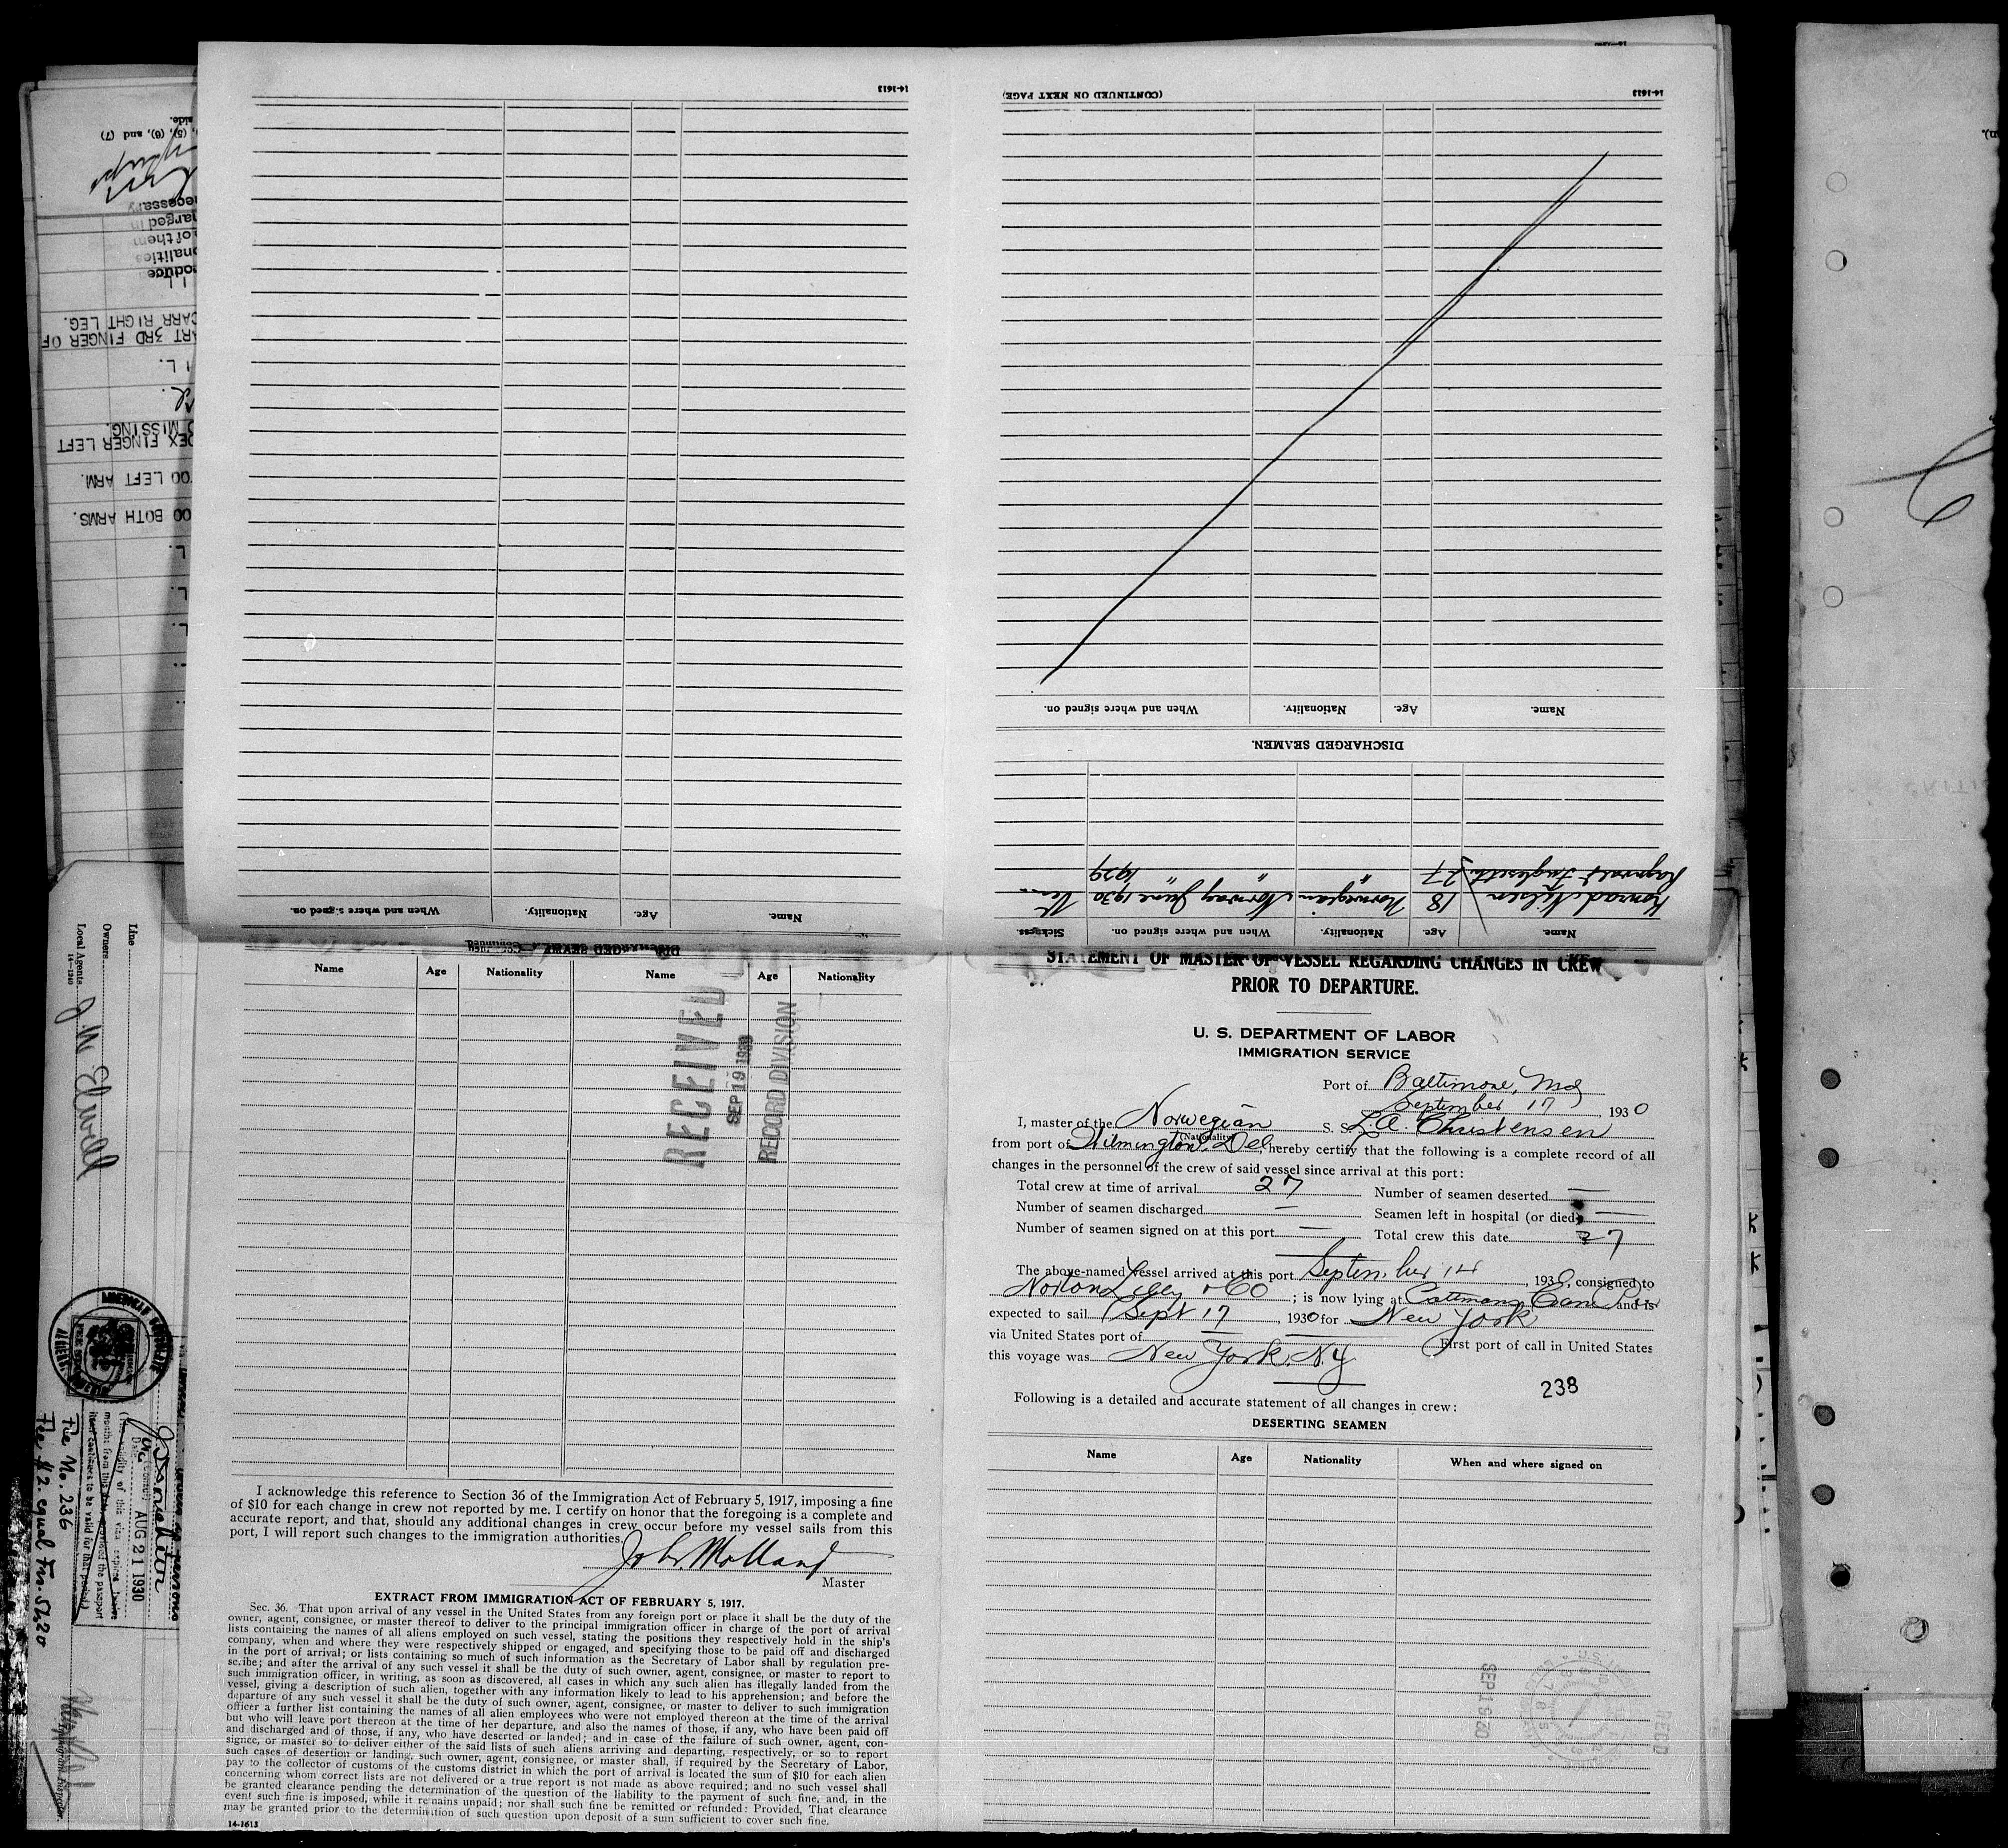 14-1613
(CONTINUED ON NEXT PAGE)
14-1613
Name.
Age.
Nationality.
When and where signed on.
DISCHARGED SEAMEN.
Konrad Nilsen 18 Norwegian Norway June 1930
27 " " " 1929
Name.
Age.
Nationality.
When and where signed on.
Sickness.
Name.
Age.
Nationality.
When and where signed on.
side.
(5), (6), and (7)
CARR RIGHT LEG.
ART 3RD FINGER OF
MISSING.
DEX FINGER LEFT
OO LEFT ARM.
OO BOTH ARMS.
Line
Owners
Local Agents J W Elwell
14-1240
AUG 21 1930
Fee No. 236
Fee $2. equal Frs. 51.20
Name Age Nationality Name Age Nationality
RECEIVED
SEP 19 1930
RECORD DIVISION
I acknowledge this reference to Section 36 of the Immigration Act of February 5, 1917, imposing a fine
of $10 for each change in crew not reported by me. I certify on honor that the foregoing is a complete and
accurate report, and that, should any additional changes in crew occur before my vessel sails from this
port, I will report such changes to the immigration authorities.
Master
EXTRACT FROM IMMIGRATION ACT OF FEBRUARY 5, 1917.
Sec. 36. That upon arrival of any vessel in the United States from any foreign port or place it shall be the duty of the
owner, agent, consignee, or master thereof to deliver to the principal immigration officer in charge of the port of arrival
lists containing the names of all aliens employed on such vessel, stating the positions they respectively hold in the ship's
company, when and where they were respectively shipped or engaged, and specifying those to be paid off and discharged
in the port of arrival; or lists containing so much of such information as the Secretary of Labor shall by regulation pre-
scribe; and after the arrival of any such vessel it shall be the duty of such owner, agent, consignee, or master to report to
such immigration officer, in writing, as soon as discovered, all cases in which any such alien has illegally landed from the
vessel, giving a description of such alien, together with any information likely to lead to his apprehension; and before the
departure of any such vessel it shall be the duty of such owner, agent, consignee, or master to deliver to such immigration
officer a further list containing the names of all alien employees who were not employed thereon at the time of the arrival
but who will leave port thereon at the time of her departure, and also the names of those, if any, who have been paid off
and discharged and of those, if any, who have deserted or landed; and in case of the failure of such owner, agent, con-
signee, or master so to deliver either of the said lists of such aliens arriving and departing, respectively, or so to report
such cases of desertion or landing, such owner, agent, consignee, or master shall, if required by the Secretary of Labor,
pay to the collector of customs of the customs district in which the port of arrival is located the sum of $10 for each alien
concerning whom correct lists are not delivered or a true report is not made as above required; and no such vessel shall
be granted clearance pending the determination of the question of the liability to the payment of such fine, and, in the
event such fine is imposed, while it remains unpaid; nor shall such fine be remitted or refunded: Provided, That clearance
may be granted prior to the determination of such question upon deposit of a sum sufficient to cover such fine.
14-1613
STATEMENT OF MASTER OF VESSEL REGARDING CHANGES IN CREW
PRIOR TO DEPARTURE.
U. S. DEPARTMENT OF LABOR
IMMIGRATION SERVICE
Port of Baltimore, Md
September 17, 1930
I, master of the Norwegian S. S. L.A. Christensen
(Nationality)
from port of Wilmington, Del, hereby certify that the following is a complete record of all
changes in the personnel of the crew of said vessel since arrival at this port:
Total crew at time of arrival 27 Number of seamen deserted —
Number of seamen discharged — Seamen left in hospital (or died) —
Number of seamen signed on at this port — Total crew this date 27
The above-named vessel arrived at this port September 14, 1930, consigned to
Norton Lilly & Co; is now lying at and is
expected to sail Sept 17, 1930 for New York
via United States port of — First port of call in United States
this voyage was New York, N.Y.
238
Following is a detailed and accurate statement of all changes in crew:
DESERTING SEAMEN
Name Age Nationality When and where signed on
SEP 19 30
RECD